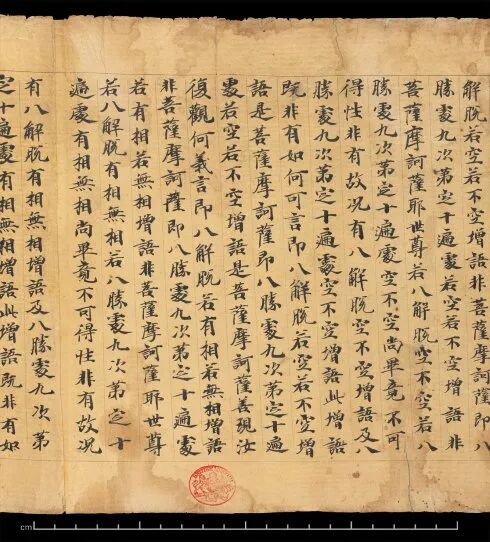 解脫若空若不空增語非菩薩摩訶薩即八
勝處九次第定十遍處若空若不空增語非
菩薩摩訶薩耶世尊若八解脫空不空若八
勝處九次第定十遍處空不空尚畢竟不可
得性非有故況有八解脫空不空增語及八
勝處九次第定十遍處空不空增語此增語
既非有如何可言即八解脫若空若不空增
語是菩薩摩訶薩即八勝處九次第定十遍
處若空若不空增語是菩薩摩訶薩善現汝
復觀何義言即八解脫若有相若無相增語
非菩薩摩訶薩即八勝處九次第定十遍處
若有相若無相增語非菩薩摩訶薩耶世尊
若八解脫有相無相若八勝處九次第定十
遍處有相無相尚畢竟不可得性非有故況
有八解脫有相無相增語及八勝處九次第
定十遍處有相無相增語此增語既非有如
cm